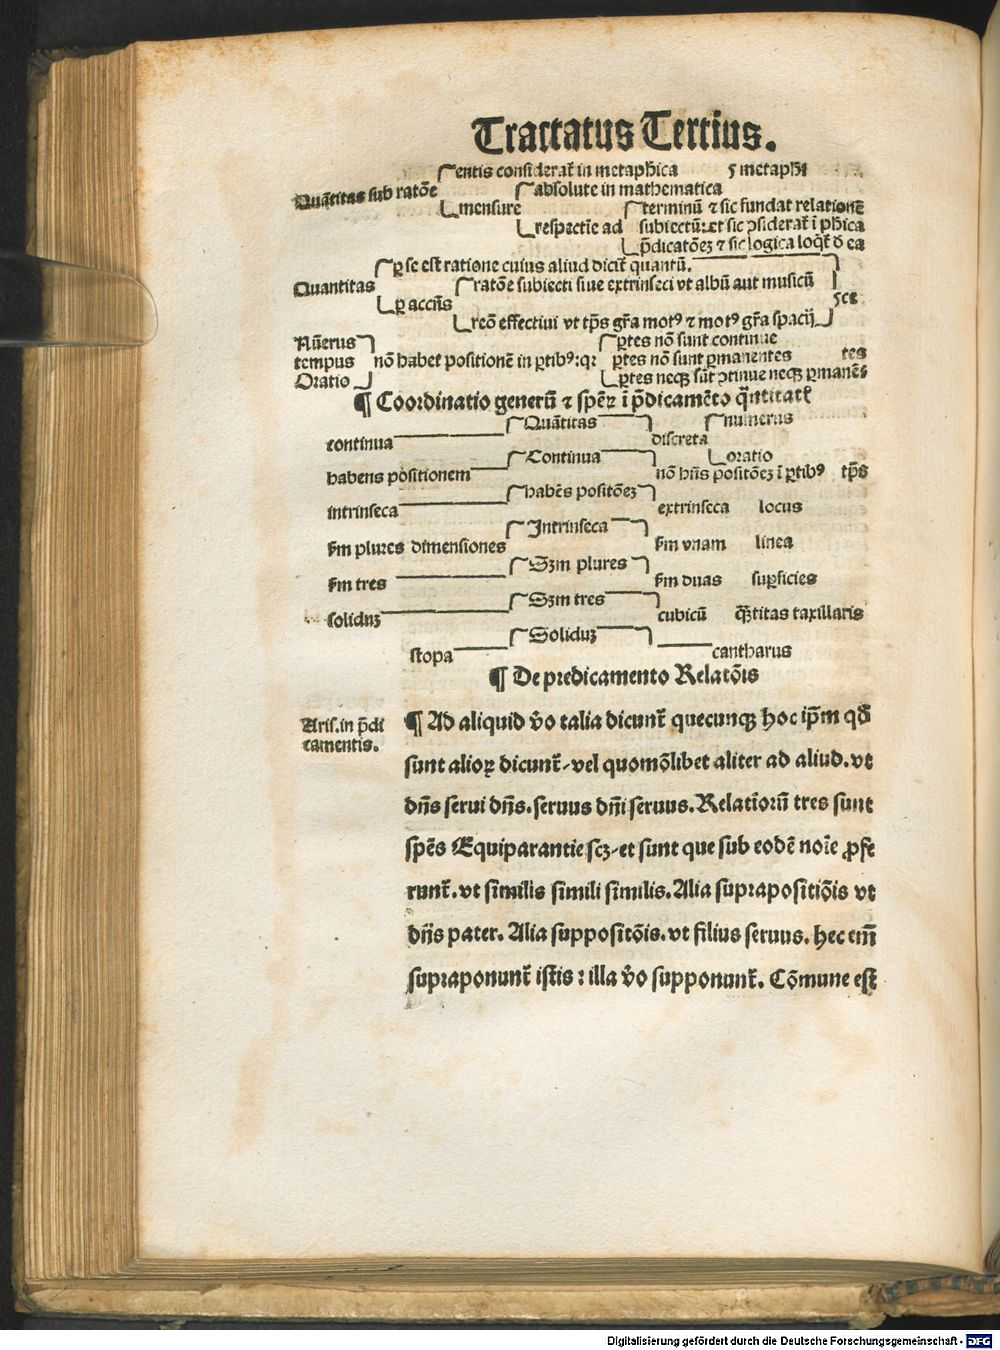 Tractatus Tertius.
entis considerat᷑ in metaphica ⁊ metaphi
Quātitas sub ratōe absolute in mathematica
mensure terminū ⁊ sic fundat relationē
respectie ad subiectū: et sic ꝯsiderat᷑ ī phica
p̄dicatōeꝫ ⁊ sic logica loq̄t᷑ ō ea
ꝑ se est ratione cuius aliud dicit᷑ quantū.
Quantitas ratōe subiecti siue extrinseci vt albū aut musicū
ꝑ accn̄s
reō effectiui vt tp̄s gr̄a motꝰ ⁊ motꝰ gr̄a spacij
Nūerus ꝑtes nō sunt continue
tempus nō habet positionē in ꝑtibꝰ: qꝛ ꝑtes nō sunt ꝑmanentes tes
Oratio ꝑtes neqꝫ sūt ꝯtinue neqꝫ ꝑmanē
¶ Coordinatio generū ⁊ spēꝝ ī p̄dicamēto q̄ntitat᷑
Quātitas numerus
continua discreta
Continua oratio
habens positionem nō hn̄s positōeꝫ ī ꝑtibꝰ tp̄s
habēs positōeꝫ
intrinseca extrinseca locus
Intrinseca
fm̄ plures dimensiones fm̄ vnam linea
Sꝫm plures
fm̄ tres fm̄ duas suꝑficies
Sꝫm tres
soliduꝫ cubicū q̄titas taxillaris
Soliduꝫ
stopa cantharus
¶ De predicamento Relatōis
Aris. in p̄di
camentis.
¶ Ad aliquid v̄o talia dicunt᷑ quecunqꝫ hoc ip̄m qd̄
sunt alioꝝ dicunt᷑, vel quomōlibet aliter ad aliud. vt
dn̄s serui dn̄s. seruus dn̄i seruus. Relatīorū tres sunt
spēs Equiparantie scꝫ, et sunt que sub eodē noīe ꝓfe
runt᷑. vt similis simili similis. Alia suprapositiōis vt
dn̄s pater. Alia suppositōis. vt filius seruus. hec em̄
supraponunt᷑ istis: illa v̄o supponunt᷑. Cōmune est
Digitalisierung gefördert durch die Deutsche Forschungsgemeinschaft - DFG